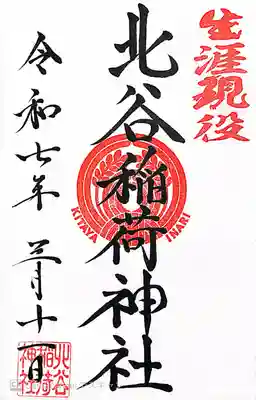 生涯現役
北谷稲荷神社
KITAYA INARI
令和七年 三月十一日
北谷
稲荷
神社